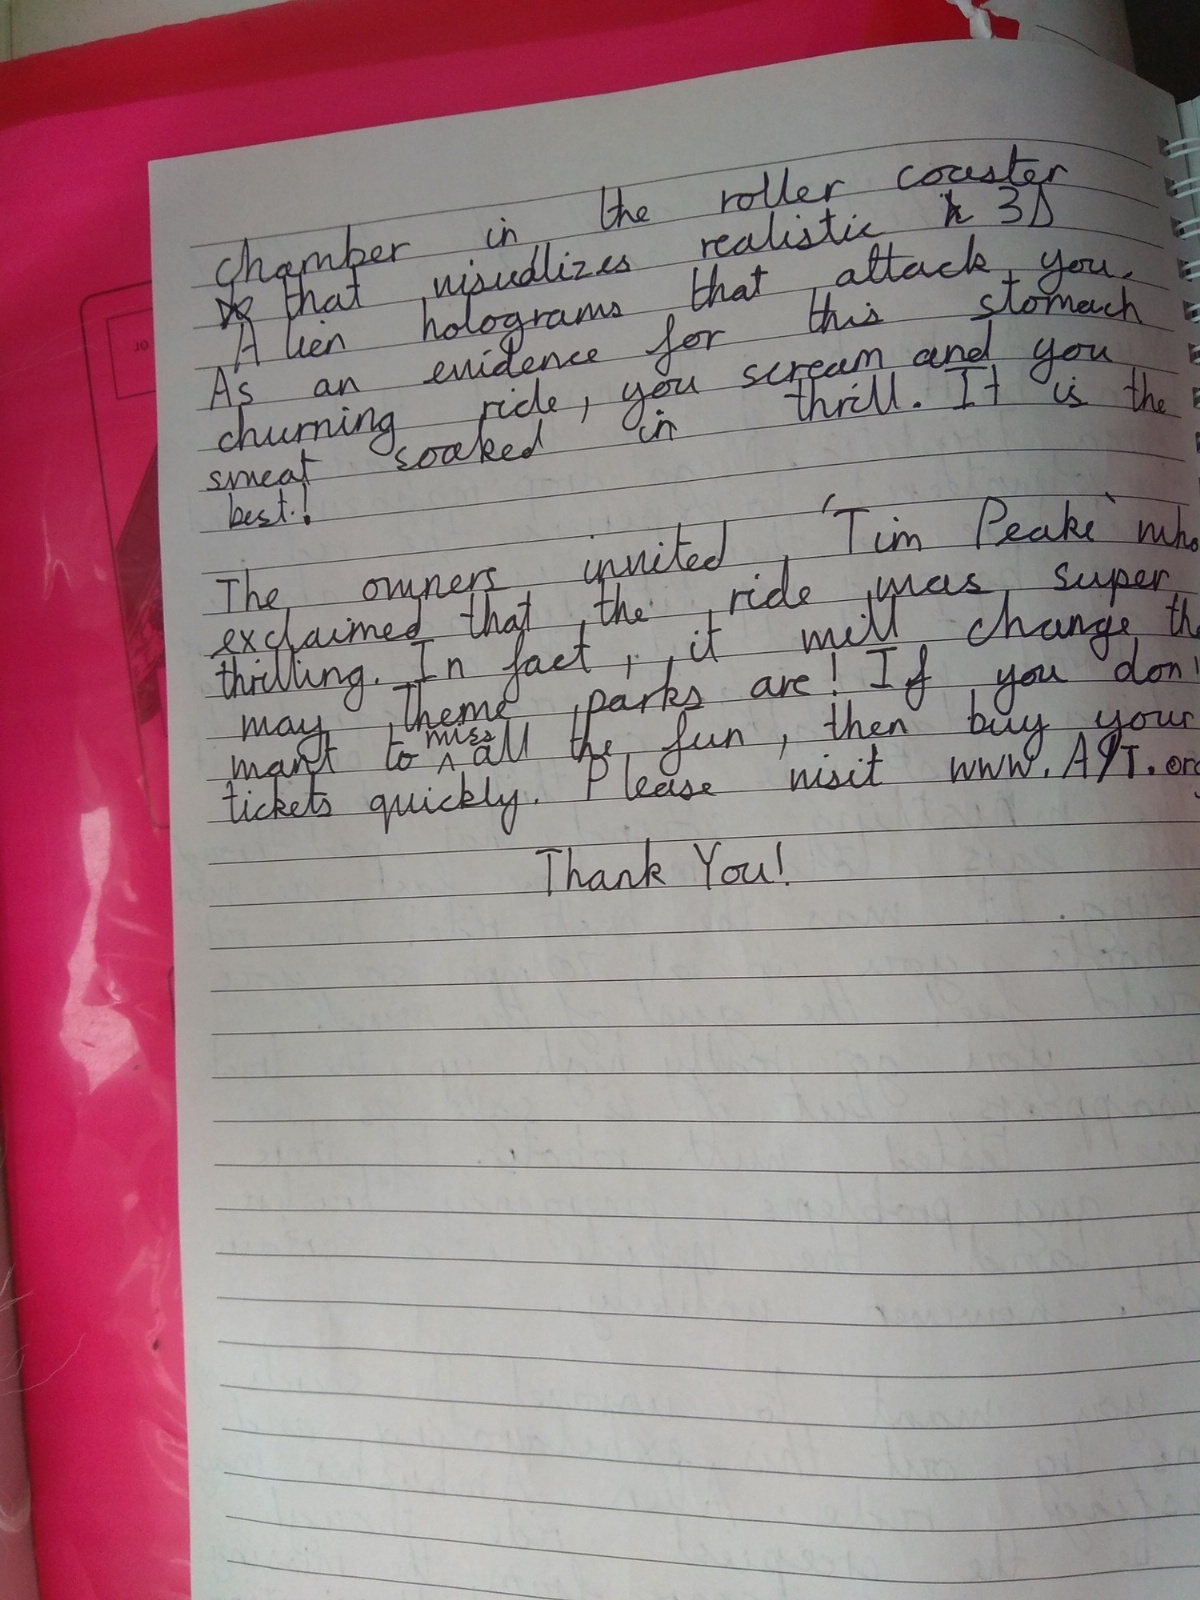 chamber in the roller coaster
that visualizes realistic 3D
Alien holograms that attack you.
As an evidence for this stomach
churning ride, you scream and you
sweat soaked in thrill. It is the
best!
The owners invited 'Tim Peake' who
exclaimed that the ride was super
thrilling. In fact, it will change the
way theme parks are! If you don'
want to miss all the fun, then buy your
tickets quickly. Please visit www.A9T.org
Thank You!